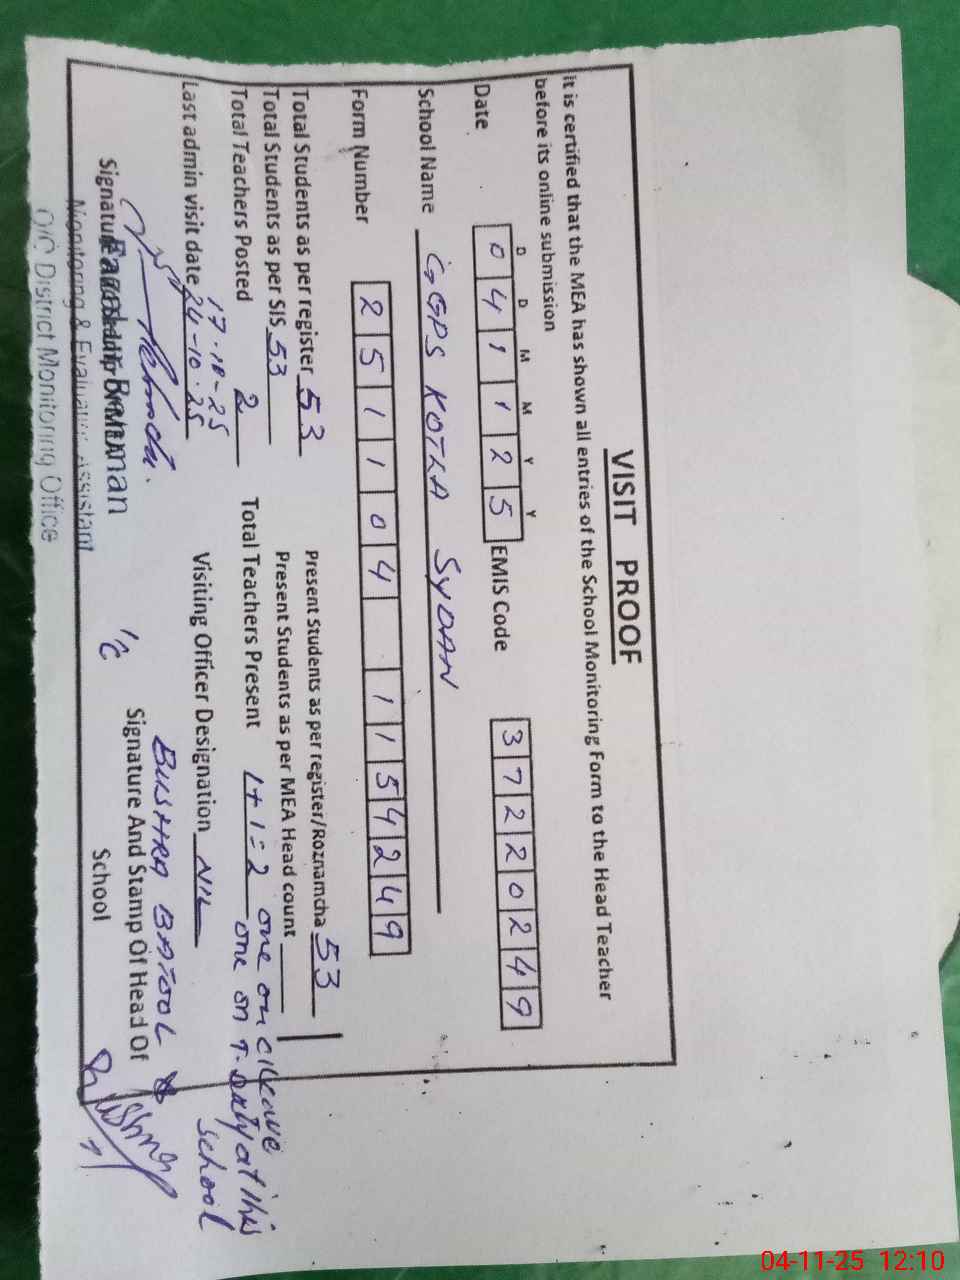 VISIT PROOF
It is certified that the MEA has shown all entries of the School Monitoring Form to the Head Teacher
before its online submission
D D M M Y Y
Date 0 4 1 1 2 5 EMIS Code 3 7 2 2 0 2 4 9
School Name GGPS KOTLA SYDAN
Form Number 2 5 1 1 0 4 1 1 5 4 2 4 9
Total Students as per register 53 Present Students as per register/Roznamcha 53
Total Students as per SIS 53 Present Students as per MEA Head count
Total Teachers Posted 2 Total Teachers Present 1+1=2 one on c/leave
one on T. Duty at this
school
17-10-25
Last admin visit date 24-10-25 Visiting Officer Designation NIL
BUSHRA BATOOL
Signature And Stamp Of Head Of
School
I/C
Signature
Monitoring & Evaluation Assistant
O/C District Monitoring Office
04-11-25 12:10